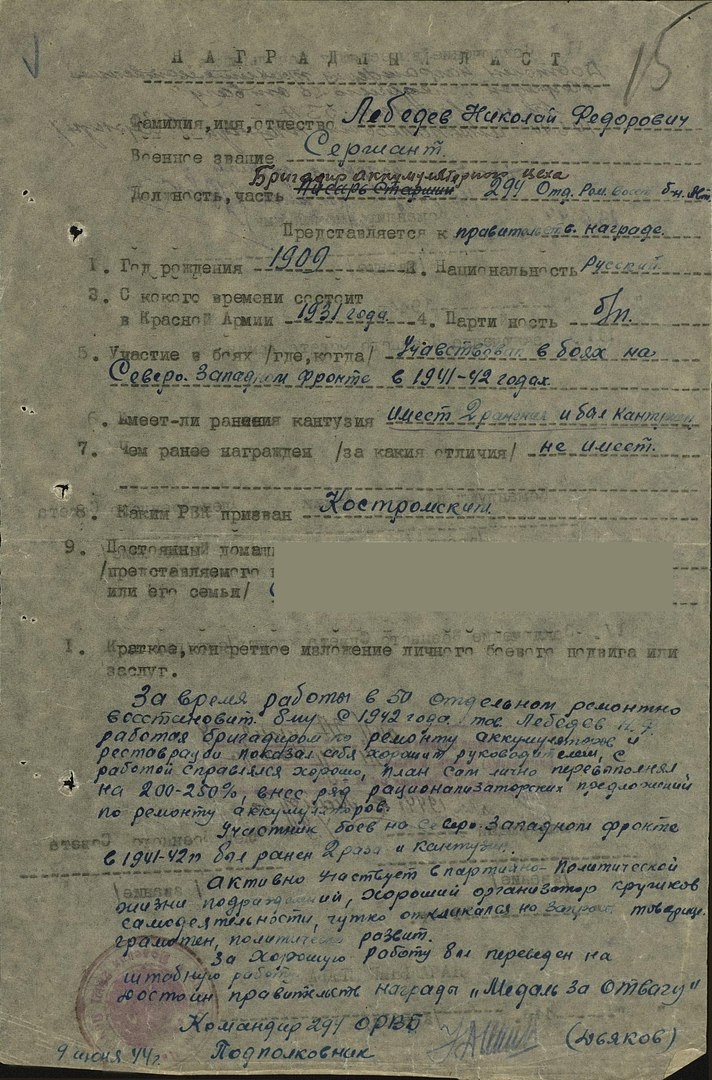 15
НАГРАДНЫЙ ЛИСТ
Фамилия,имя,отчество Лебедев Николай Федорович
Военное звание Сержант
Бригадир аккумуляторного цеха
Должность,часть Писарь Старший 294 Отд. Рем. Восс б-н.
Представляется к правительств. награде.
1. Год рождения 1909 Национальность Русский
3. С какого времени состоит
в Красной Армии 1931 года. 4. Парти ность б/п.
5. Участие в боях /где,когда/ Учавствовал в боях на
Северо. Западном фронте в 1941-42 годах.
6. Имеет-ли ранения кантузия Имеет 2 ранения и был
7. Чем ранее награжден /за какия отличия/ не имеет.
8. Каким РВК призван Костромским
9. Постоянный
/представляемого
или его семьи/
I. Краткое,конкретное изложение личного боевого подвига или
заслуг.
За время работы в 50 отдельном ремонтно
восстановит. с 1942 года тов Лебедев Н.Ф.
работая бригадиром по ремонту аккумуляторов и
реставрации показал себя хорошим руководителем, с
работой справлялся хорошо, план сам лично перевыполнял
на 200-250%, внес ряд рационализаторских предложений
по ремонту аккумуляторов.
Участник боев на Северо. Западном фронте
в 1941-42г был ранен 2 раза и кантузия.
Активно участвует в партийно-Политической
жизни хороший организатор кружков
самодеятельности, чутко откликался на
грамотен, политически развит.
За хорошую работу был переведен на
штабную работу
Достоин правительств награды „Медаль за Отвагу"
Командир 294 ОРВБ
Подполковник (Дьяков)
9 июня 44г.